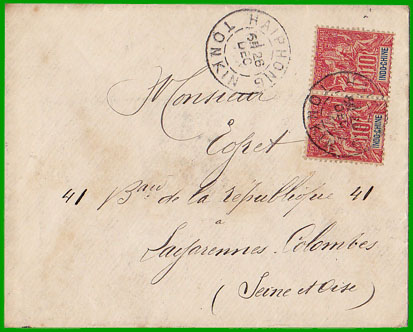 HAIPHONG
TONKIN
26
DEC
10
INDO-CHINE
10
INDO-CHINE
Monsieur
Egret
41 Bard de la République 41
à
La Garennes-Colombes
(Seine et Oise)